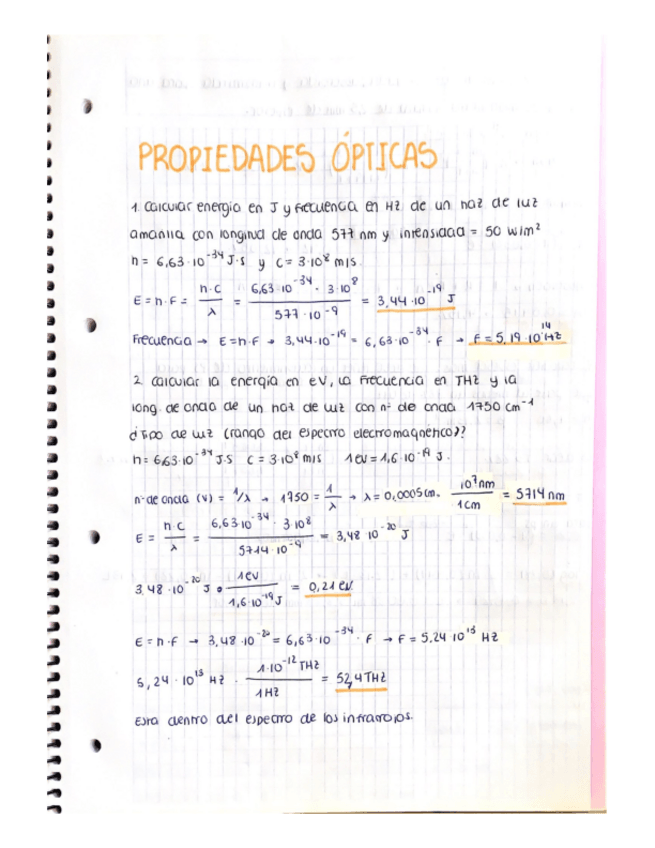 PROPIEDADES ÓPTICAS
1. Calcular energía en J y frecuencia en Hz de un haz de luz
amarilla con longitud de onda 577 nm y intensidad = 50 W/m²
h = 6,63·10⁻³⁴ J·s y c = 3·10⁸ m/s.
E = h·F = h·c / λ = 6,63·10⁻³⁴ · 3·10⁸ / 577·10⁻⁹ = 3,44·10⁻¹⁹ J
Frecuencia → E=h·F → 3,44·10⁻¹⁹ = 6,63·10⁻³⁴ · F → F = 5,19·10¹⁴ Hz
2. Calcular la energía en eV, la frecuencia en THz y la
long. de onda de un haz de luz con nº de onda 1750 cm⁻¹
¿Tipo de luz (rango del espectro electromagnético)?
h = 6,63·10⁻³⁴ J·S c = 3·10⁸ m/s 1 eV = 1,6·10⁻¹⁹ J.
nº de onda (ν) = 1/λ → 1750 = 1/λ → λ = 0,0005 cm. 10⁷ nm / 1 cm = 5714 nm
E = h·c / λ = 6,63·10⁻³⁴ · 3·10⁸ / 5714·10⁻⁹ = 3,48·10⁻²⁰ J
3,48·10⁻²⁰ J · 1 eV / 1,6·10⁻¹⁹ J = 0,21 eV.
E = h·F → 3,48·10⁻²⁰ = 6,63·10⁻³⁴ · F → F = 5,24·10¹³ Hz
5,24·10¹³ Hz · 1·10⁻¹² THz / 1 Hz = 52,4 THz
Esta dentro del espectro de los infrarrojos.